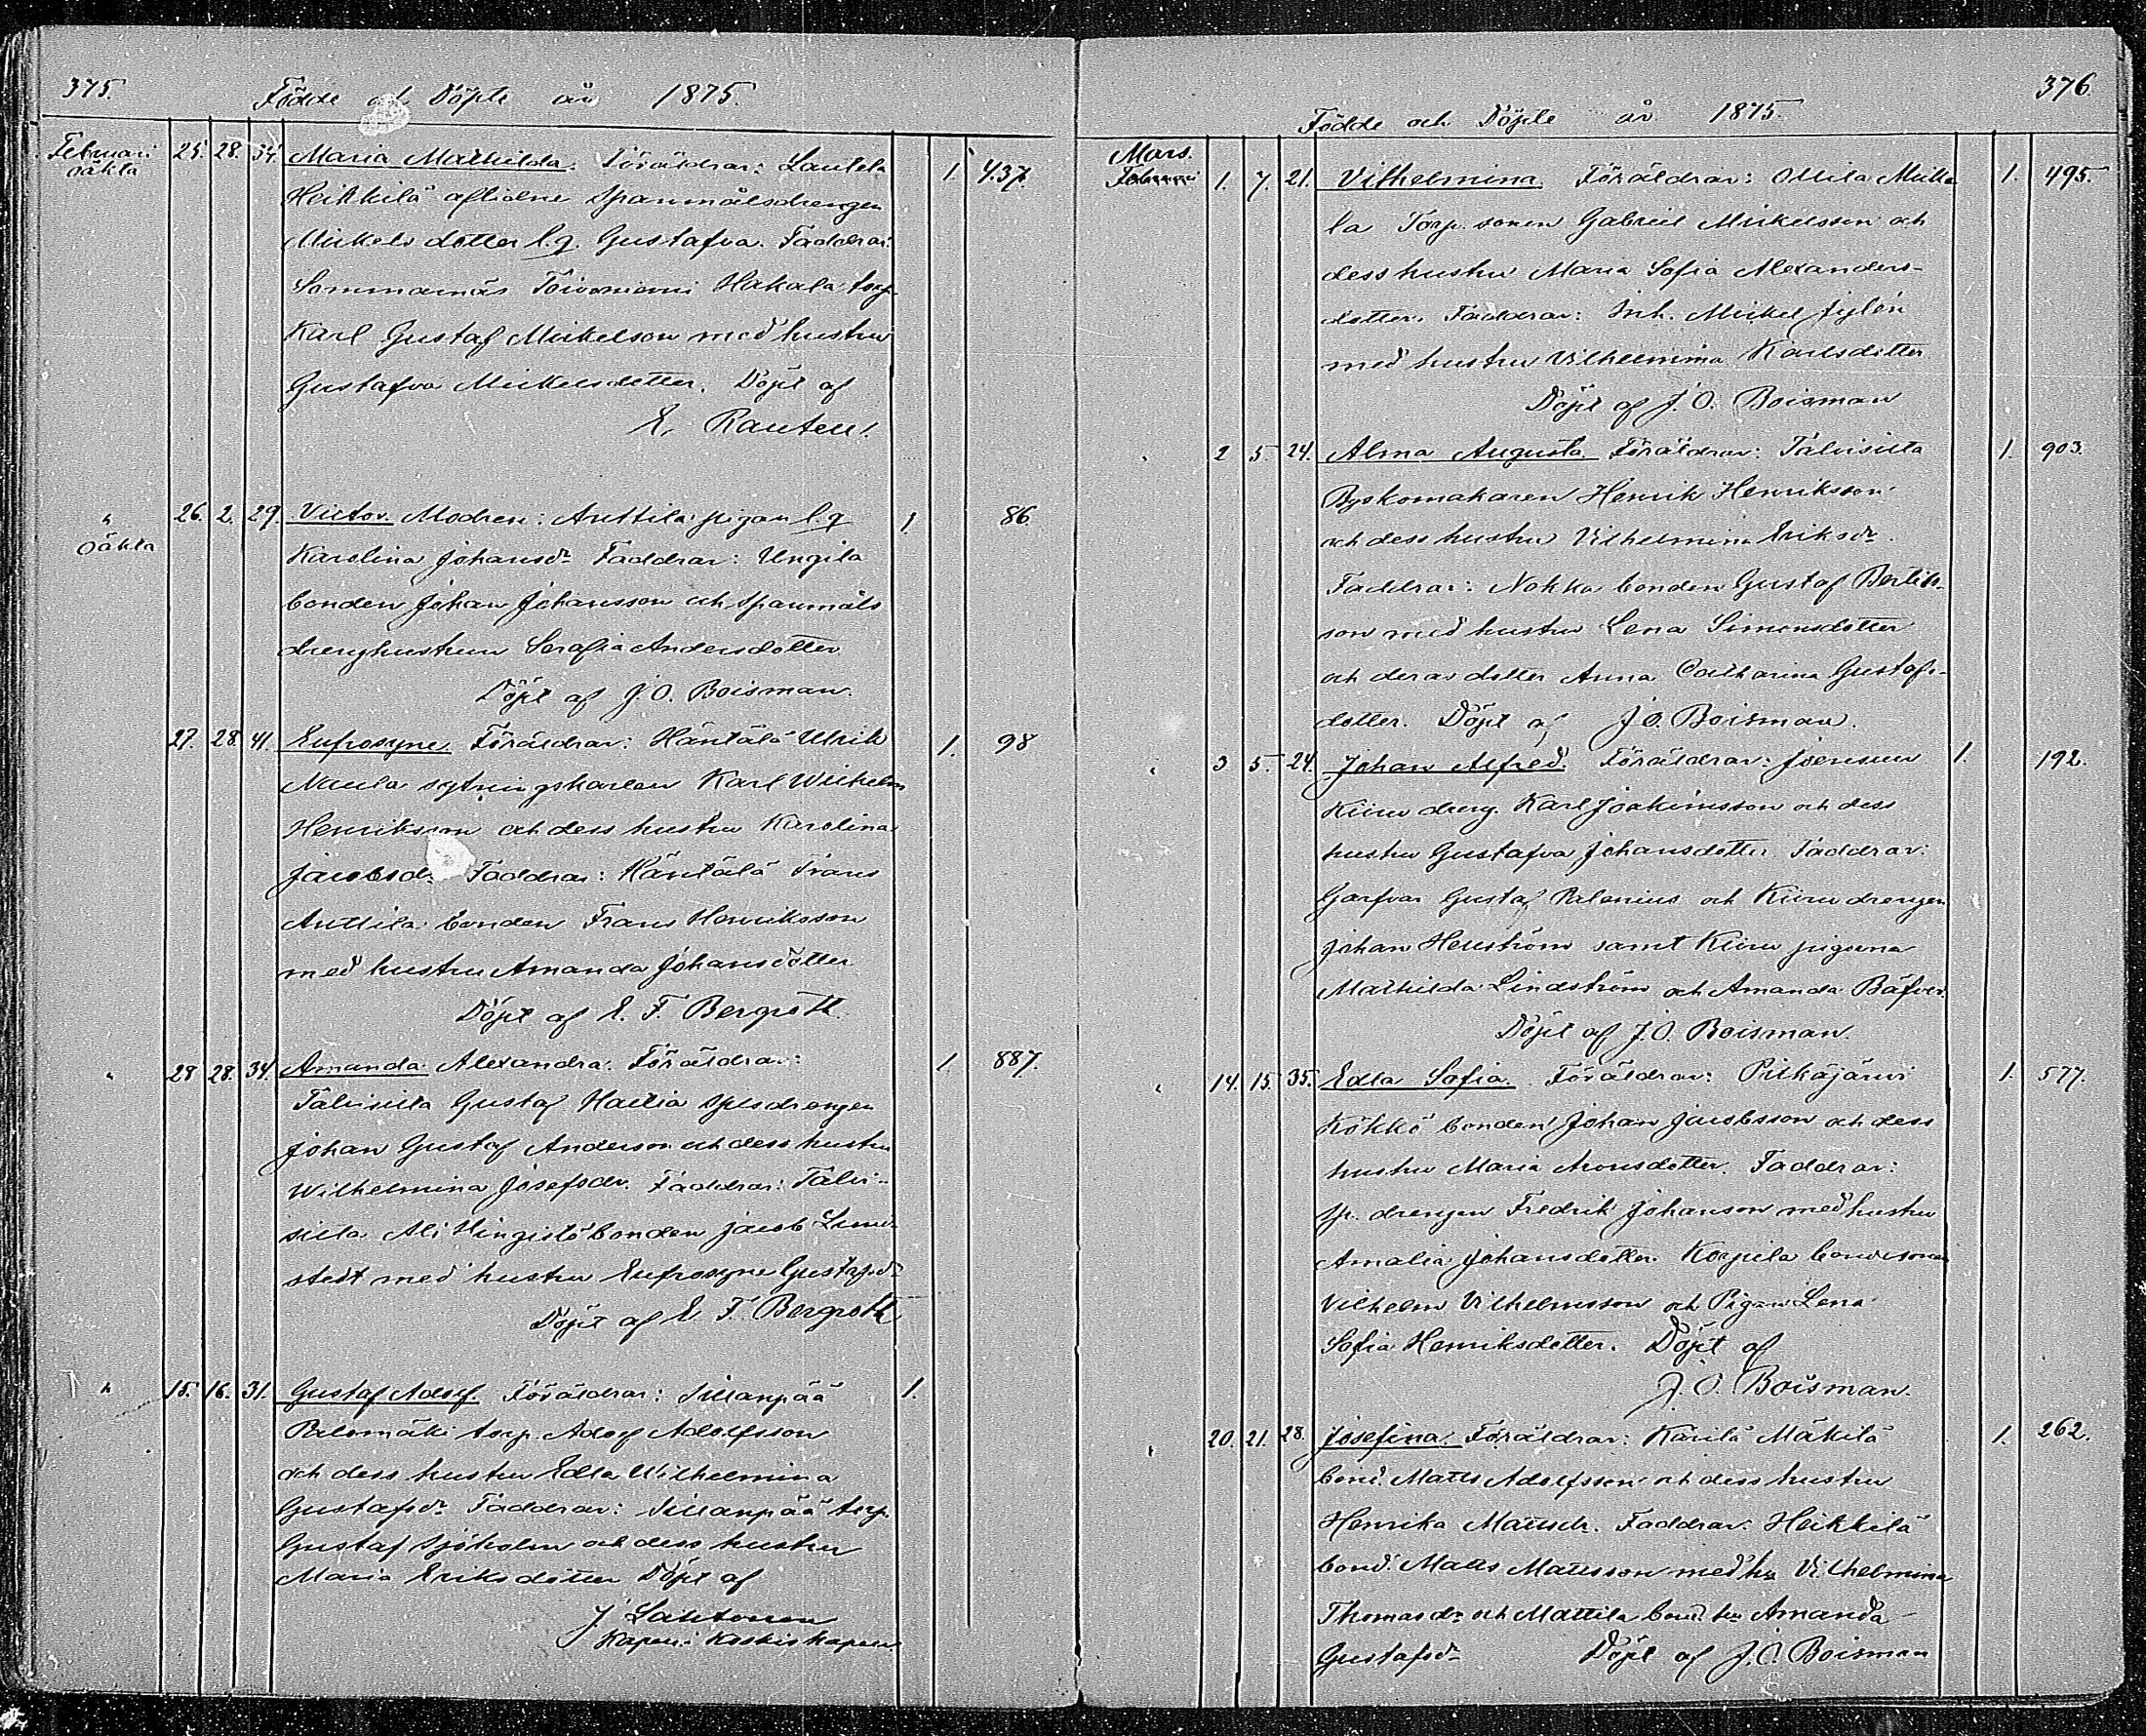 375.
Födde och Döpte år 1875.
Februari 25. 28. 34. Maria Mathilda. Föräldrar: Lautela 1. 437.
oäkta
Heikkilä aflidne Spanmålsdrengen
Mickels dotter l.q. Gustafva. Faddrar:
Sommarnäs Toivoniemi Hakala torp.
Karl Gustaf Mickelson med hustru
Gustafva Mickelsdotter. Döpt af
E. Rauten.
" 26. 2. 29. Victor. Modren: Anttila pigan l.q 1. 86
oäkta
Karolina Johansdr Faddrar: Ungila
bonden Johan Johansson och spanmåls
drenghustrun Serafia Andersdotter
Döpt af J.O. Boisman.
27. 28. 41. Eufrosyne. Föräldrar: Häntälä Ulrik 1. 98
Naula sytningskarlen Karl Wilhelm
Henriksson och dess hustru Karolina
Jacobsdr Faddrar: Häntälä Frans
Anttila bonden Frans Henriksson
med hustru Amanda Johansdotter
Döpt af E. F. Bergroth.
" 28 28. 34. Amanda Alexandra. Föräldrar: 1 887.
Talvisilta Gustaf Hatia spsdrengen
Johan Gustaf Anderson och dess hustru
Wilhelmina Josefsdr. Faddrar: Talvi-
silta Ali Hingistö bonden Jacob Lund-
stedt med hustru Eufrosyne Gustafsdr
Döpt af E. F. Bergroth
" 15. 16. 31. Gustaf Adolf. Föräldrar: Sillanpää 1.
Palomäki torp. Adolf Adolfsson
och dess hustru Edla Wilhelmina
Gustafsdr Faddrar: Sillanpää torp.
Gustaf Sjöholm och dess hustru
Maria Eriksdotter Döpt af
J Lahtonen
Kapell i Koskis kapell
376
Födde och Döpte år 1875.
Mars.
Februari 1. 7. 21. Vilhelmina. Föräldrar: Ollila Mickla 1. 495.
la Torp. sonen Gabriel Mickelsson och
dess hustru Maria Sofia Alexanders-
dotter. Faddrar: Inh. Mickel Fylén
med hustru Vilhelmina Karlsdotter
Döpt af J. O. Boisman
" 2 5. 24. Alma Augusta Föräldrar: Talvisilta 1. 903.
Byskomakaren Henrik Henriksson
och dess hustru Vilhelmina Eriksdr.
Faddrar: Nokka bonden Gustaf Bertils-
son med hustru Lena Simonsdotter
och deras dotter Anna Catharina Gustafs-
dotter. Döpt af J.O. Boisman.
" 3 5. 24. Johan Alfred. Föräldrar: Joensuu 1. 192.
Kiiru dreng. Karl Joakimsson och dess
hustru Gustafva Johansdotter. Faddrar:
Garfvar Gustaf Palenius och Kiiru drengen
Johan Hellström samt Kiiru pigorna
Mathilda Lindström och Amanda Bäfver.
Döpt af J.O. Boisman.
" 14. 15. 35. Edla Sofia. Föräldrar: Pitkäjärvi 1. 577.
Kökkö bonden Johan Jacobsson och dess
hustru Maria Aronsdotter. Faddrar:
sp. drengen Fredrik Johanson med hustru
Amalia Johansdotter. Korpila bondesonen
Vilhelm Vilhelmsson och Pigan Lena
Sofia Henriksdotter. Döpt af
J. O. Boisman.
" 20. 21. 28. Josefina. Föräldrar: Karilä Mäkilä 1. 262.
bond. Matts Adolfsson och dess hustru
Henrika Mattsdr. Faddrar: Heikkilä
bond. Matts Mattsson med hu Vilhelmina
Thomasdr och Mattila bond. hu Amanda
Gustafsdr Döpt af J. O. Boisman